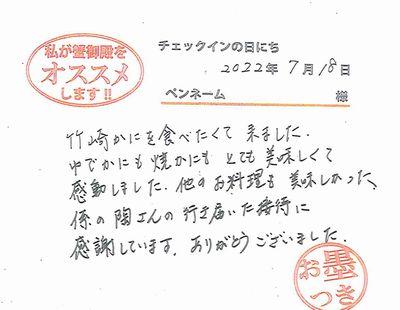 私が蟹御殿を
オススメ
します!!
チェックインの日にち
2022年7月18日
ペンネーム 様
竹崎かにを食べたくて来ました.
ゆでかにも焼かにもとても美味しくて
感動しました.他のお料理も美味しかった、
係の陶さんの行き届いた接待に
感謝しています.ありがとうございました.
お墨
つき